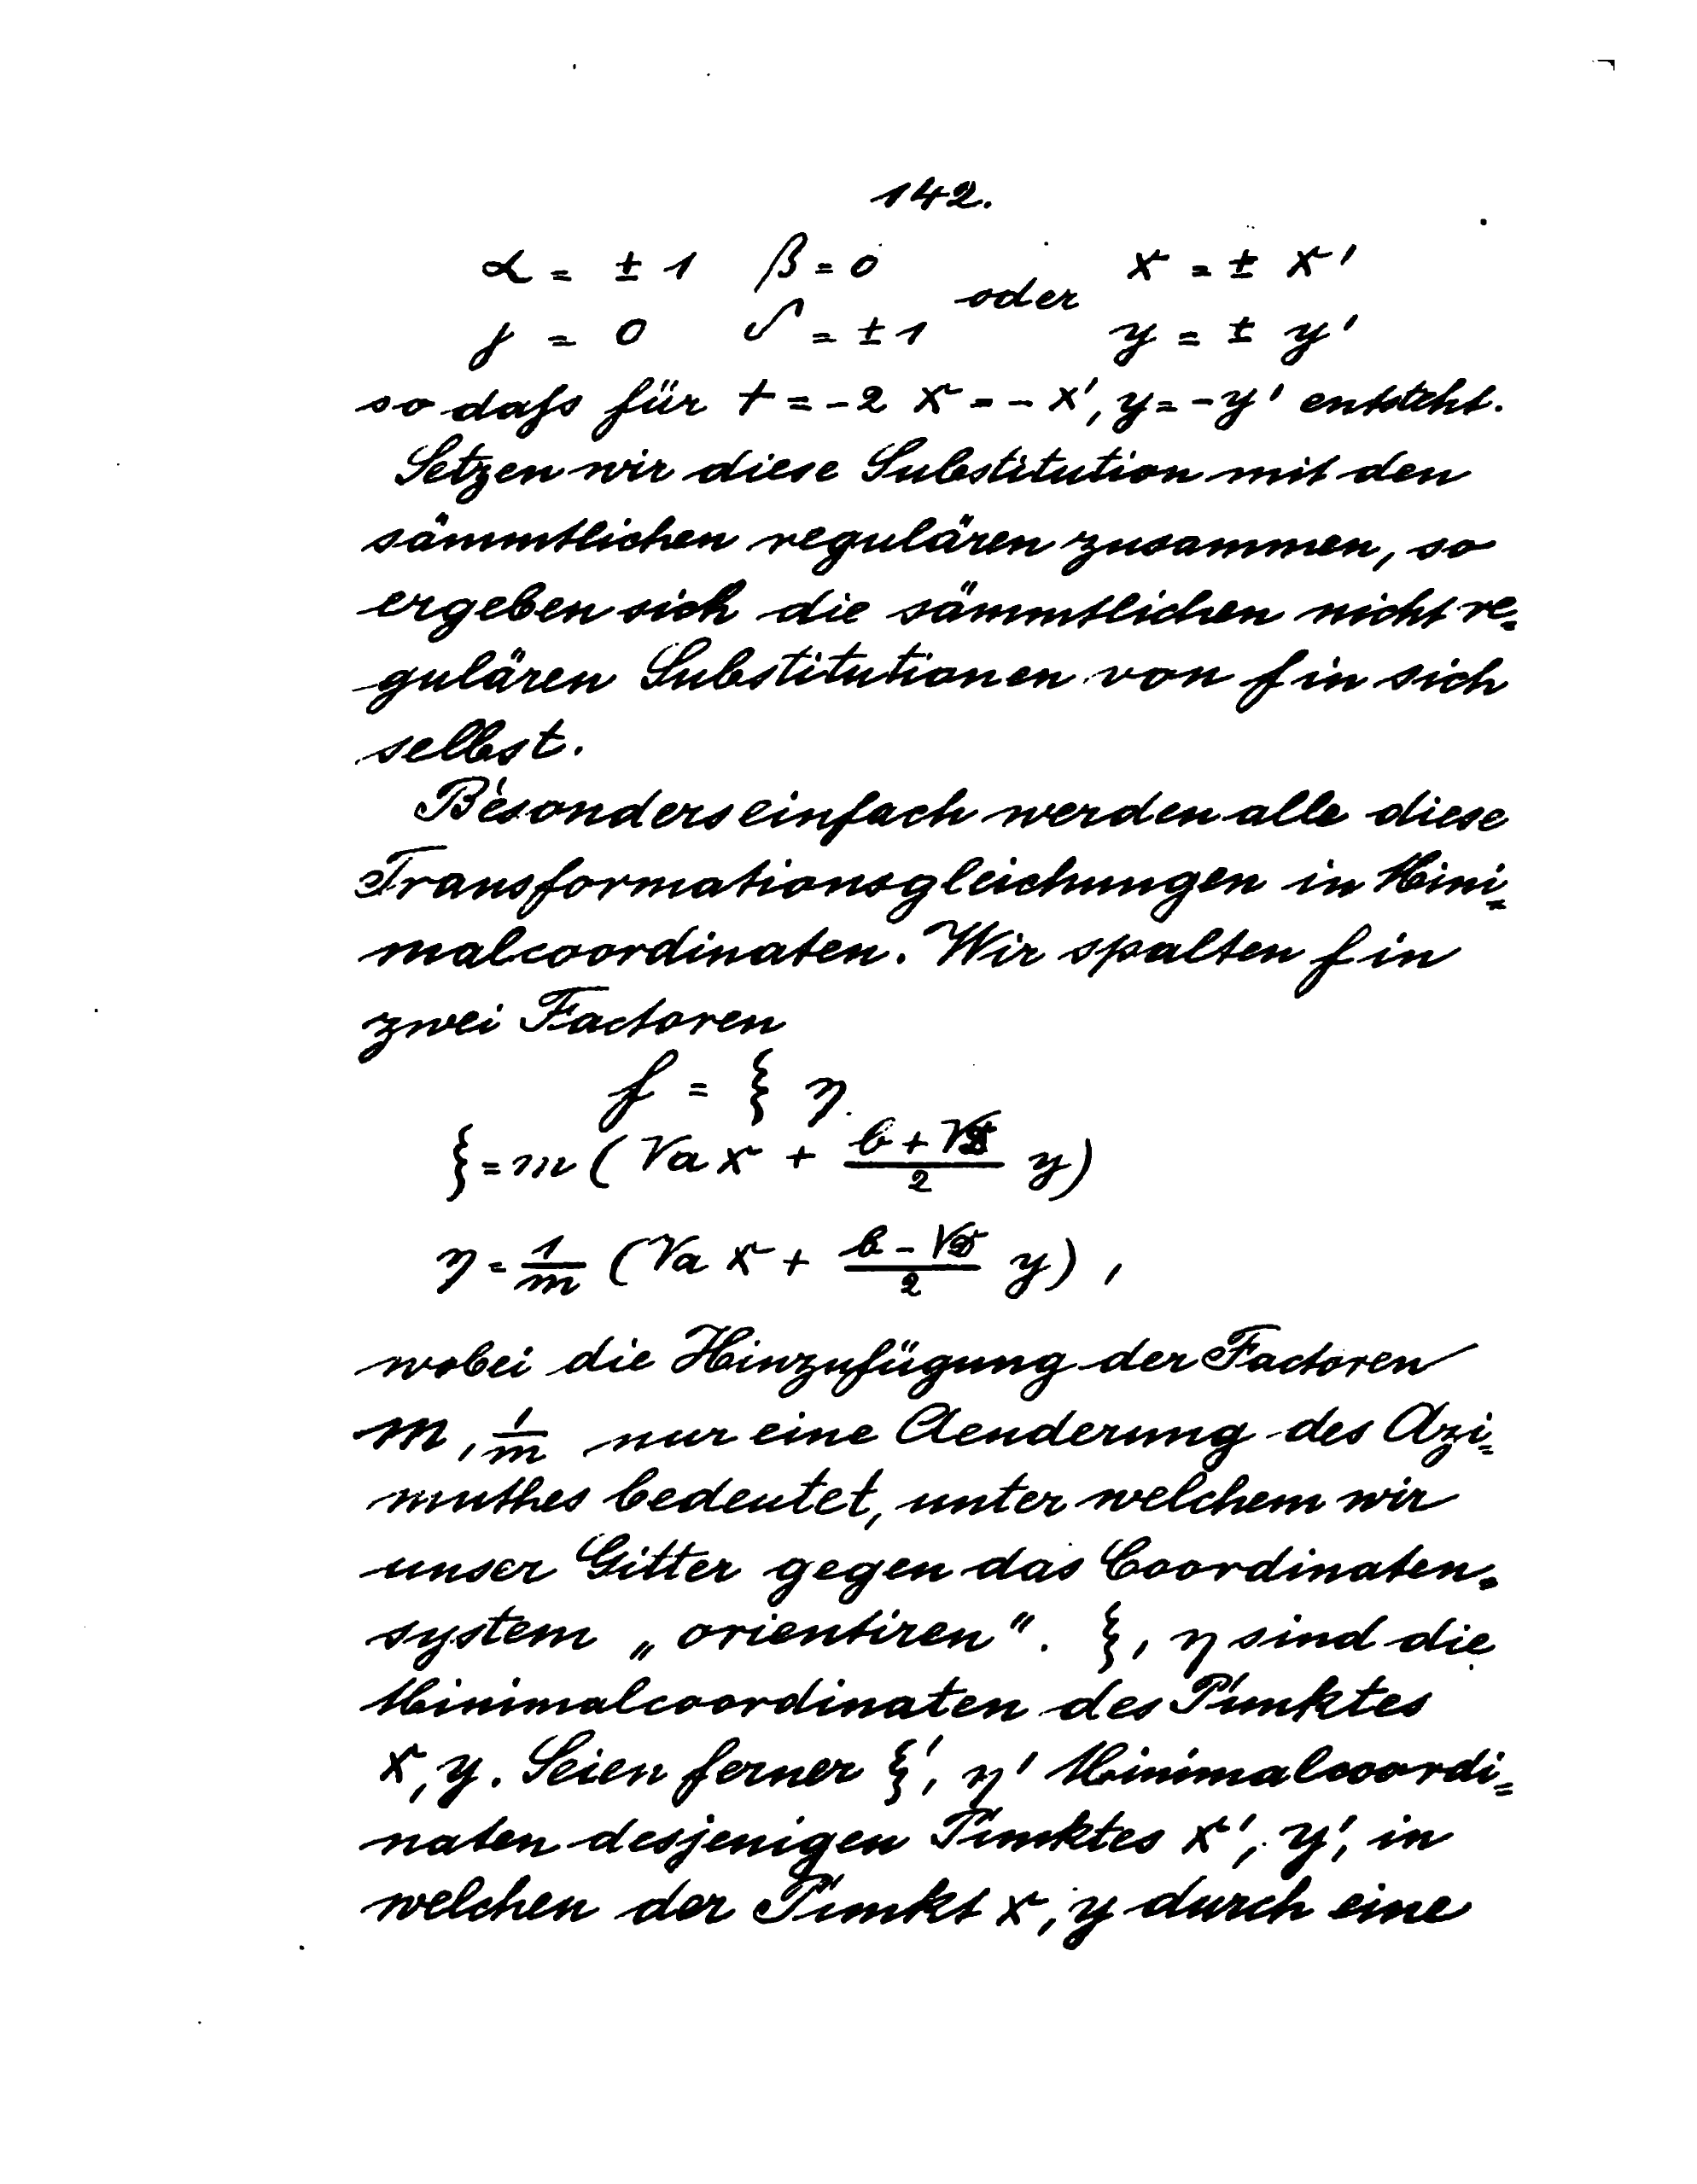 142.
α = ± 1 β = 0 oder x = ± x'
γ = 0 δ = ± 1 y = ± y'
so daſs für t = -2 x = - x', y = - y' entsteht.
Setzen wir diese Substitution mit den
sämmtlichen regulären zusammen, so
ergeben sich die sämmtlichen nicht re=
gulären Substitutionen von f in sich
selbst.
Besonders einfach werden alle diese
Transformationsgleichungen in Mini=
malcoordinaten. Wir spalten f in
zwei Factoren
f = ξ η.
ξ = m (√a x + (b + √D)/2 y)
η = 1/m (√a x + (b - √D)/2 y),
wobei die Hinzufügung der Factoren
m, 1/m nur eine Aenderung des Azi=
muthes bedeutet, unter welchem wir
unser Gitter gegen das Coordinaten=
system „orientiren“. ξ, η sind die
Minimalcoordinaten des Punktes
x, y. Seien ferner ξ', η' Minimalcoordi=
naten desjenigen Punktes x', y', in
welchen der Punkt x, y durch eine